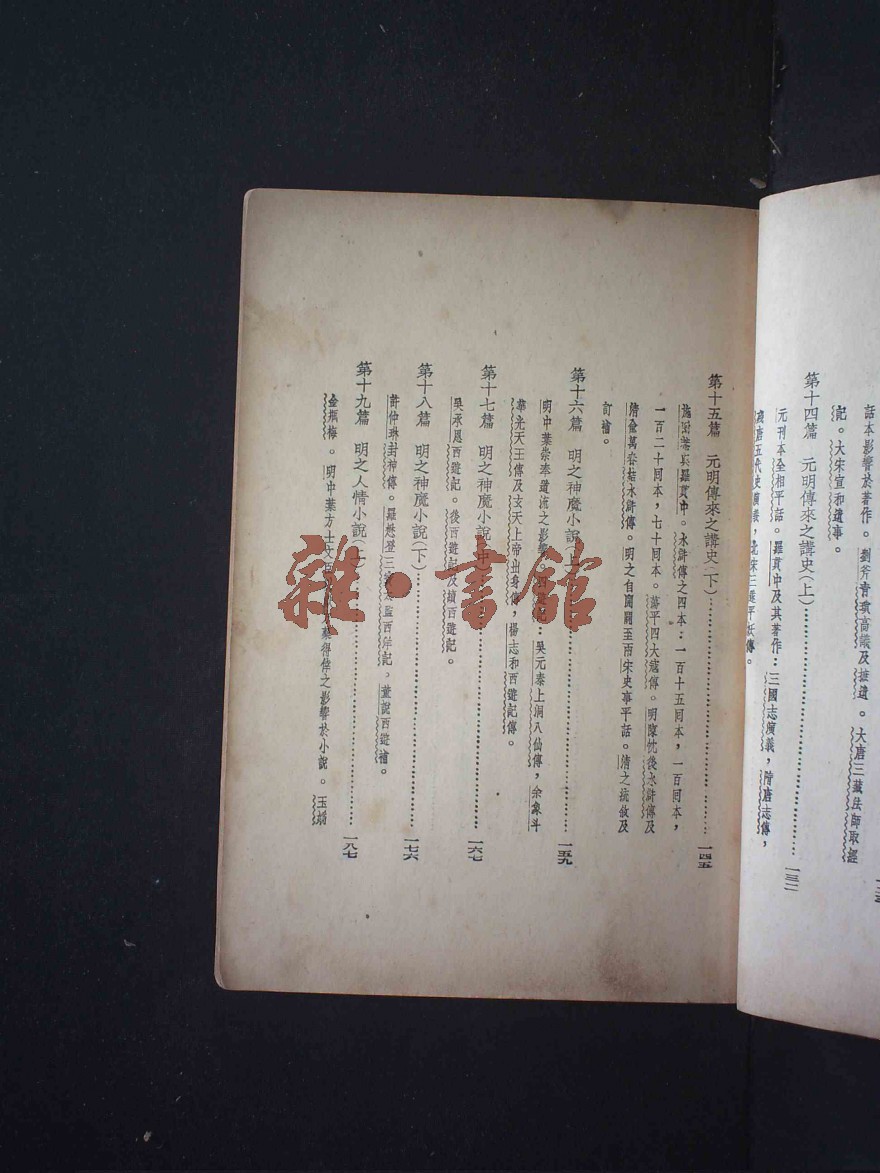 話本影響於著作。劉斧青瑣高議及摭遺。大唐三藏法師取經
記。大宋宣和遺事。
第十四篇 元明傳來之講史(上)…………一三二
元刊本全相平話。羅貫中及其著作:三國志演義,隋唐志傳,
殘唐五代史演義,北宋三遂平妖傳。
第十五篇 元明傳來之講史(下)…………一四五
施耐菴與羅貫中。水滸傳之四本:一百十五回本,一百回本,
一百二十回本,七十回本。蕩平四大寇傳。明陳忱後水滸傳及
清俞萬春結水滸傳。明之自開闢至兩宋史事平話。清之
訂補。
第十六篇 明之神魔小說(上)…………一五九
明中葉崇奉道流之影響。:吳元泰上洞八仙傳,余象斗
華光天王傳及玄天上帝出身傳,楊志和西遊記傳。
第十七篇 明之神魔小說(中)…………一六七
吳承恩西遊記。後西遊記及續西遊記。
第十八篇 明之神魔小說(下)…………一七六
許仲琳封神傳。羅懋登三寶太監西洋記。董說西遊補。
第十九篇 明之人情小說(上)…………一八七
金瓶梅。明中葉方士文臣藥得倖之影響於小說。玉嬌
雜·書館